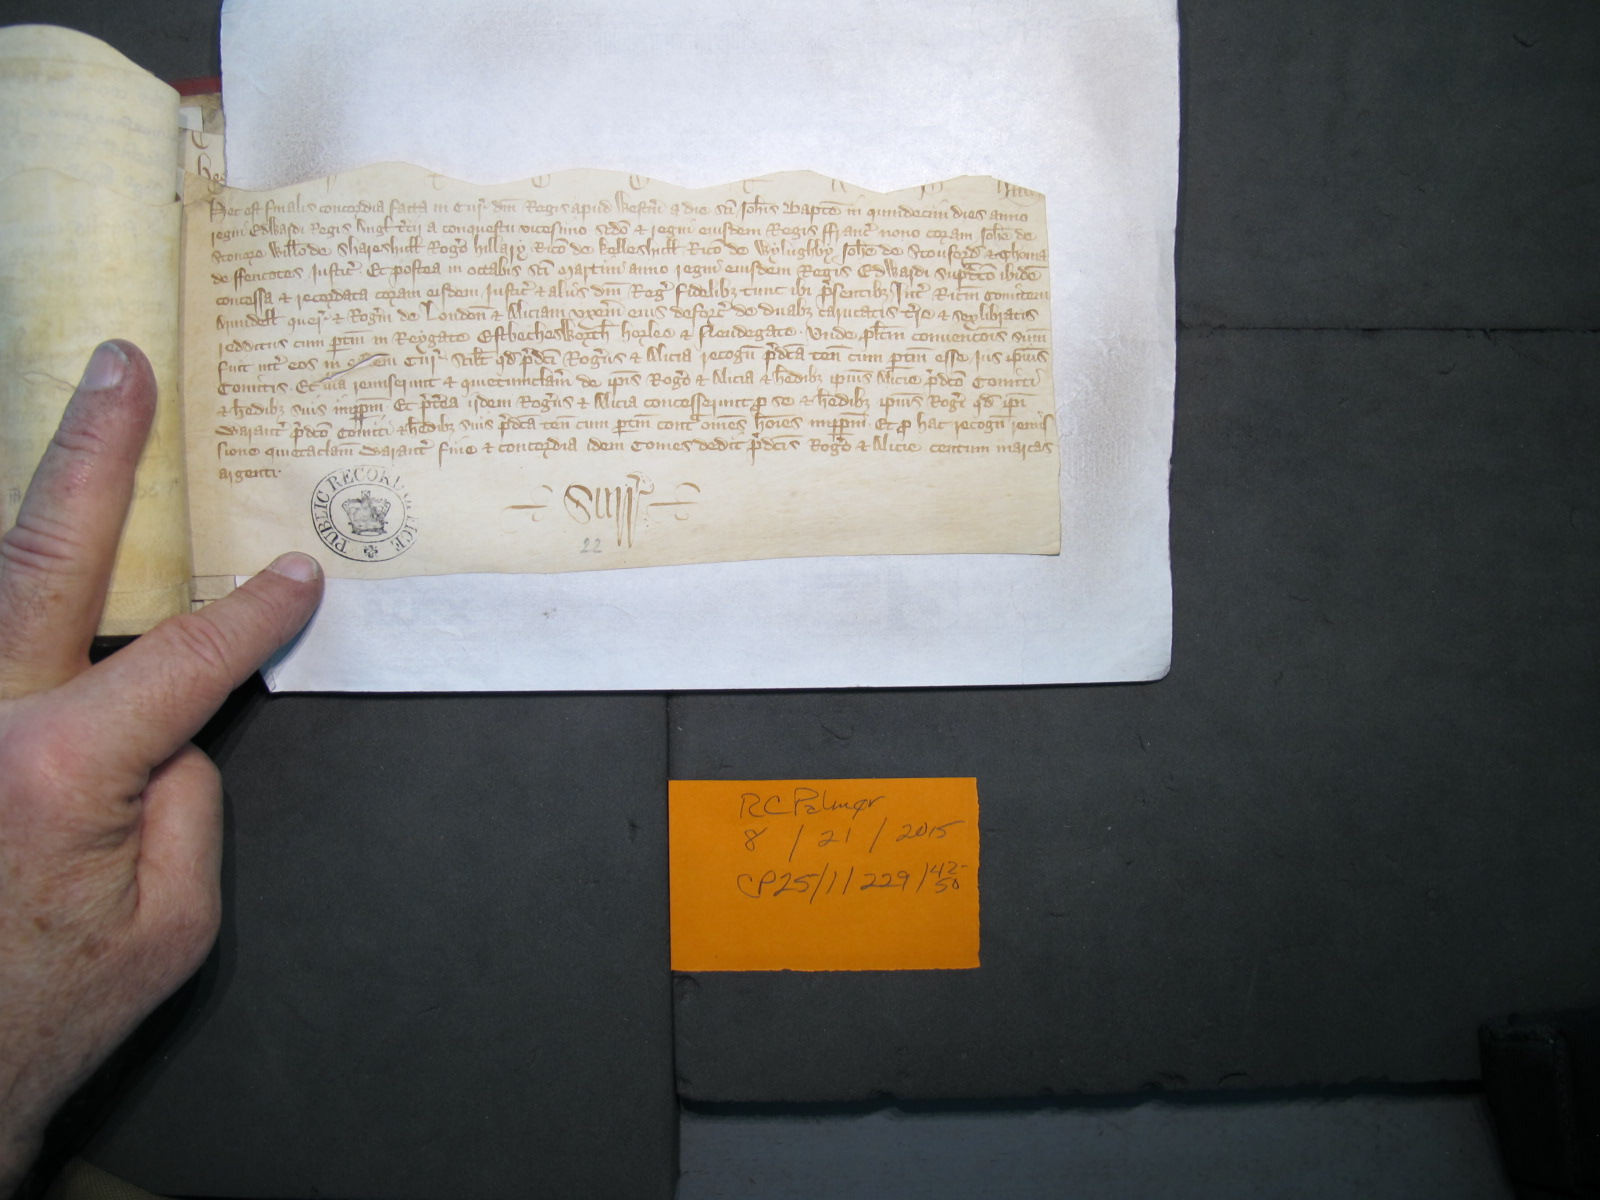 Hec est finalis concordia facta in Cur' dñi Regis apud Westm̃ a die Sc̃i Joh̃is Bapt̃e in quindecim dies anno
regni Edwardi Regis Angl' t'cij a conquestu vicesimo sc̃do & regni eiusdem Regis ffranc' nono coram Joh̃e de
Stonore Will̃o de Shareshull Rog̃o hillary Ric̃o de Kelleshull Ric̃o de Wylughby Joh̃e de Stouford & Thoma
de ffencotes Justic' Et postea in octabis Sc̃i Martini anno regni eiusdem Regis Edwardi sup̃dc̃o ibid̃e
concessa & recordata coram eisdem Justic' & alijs dñi Reg' fidelibȝ tunc ibi p̃sentibȝ Int' Ric̃m Comitem
Arundell quer' & Rog̃m de London & Aliciam vxem̃ eius deforc' de duabȝ carucatis t're & sex libratis
redditus cum ptiñ in Reygate Estbechesworth horlee & fflendegate Vnde pl̃itm convenc̃ois sum̃
fuit int' eos in eadem Cur' Scilt̃ qd p̃dc̃i Rog̃us & Alicia recogñ p̃dc̃a teñ cum ptiñ esse Ius ipius
Comitis Et illa remiserunt & quietumclam̃ de ip̃is Rog̃o & Alicia & h̃edibȝ ipius Alicie p̃dc̃o Comiti
& h̃edibȝ suis imppm̃ Et p̃t'ea idem Rog̃us & Alicia concesserunt p se & h̃edibȝ ipius Rog̃i qd ip̃i
Warant' p̃dc̃o Comiti & h̃edibȝ suis p̃dc̃a teñ cum ptiñ cont̃ om̃es hoĩes imppm̃ Et p hac recogñ remis
sione quietaclam̃ Warant' fine & concordia idem Comes dedit p̃dc̃is Rog̃o & Alicie centum marcas
argenti
Surr'
22
PUBLIC RECORD OFFICE
RC Palmer
8 / 21 / 2015
CP25/1/229/42-
50